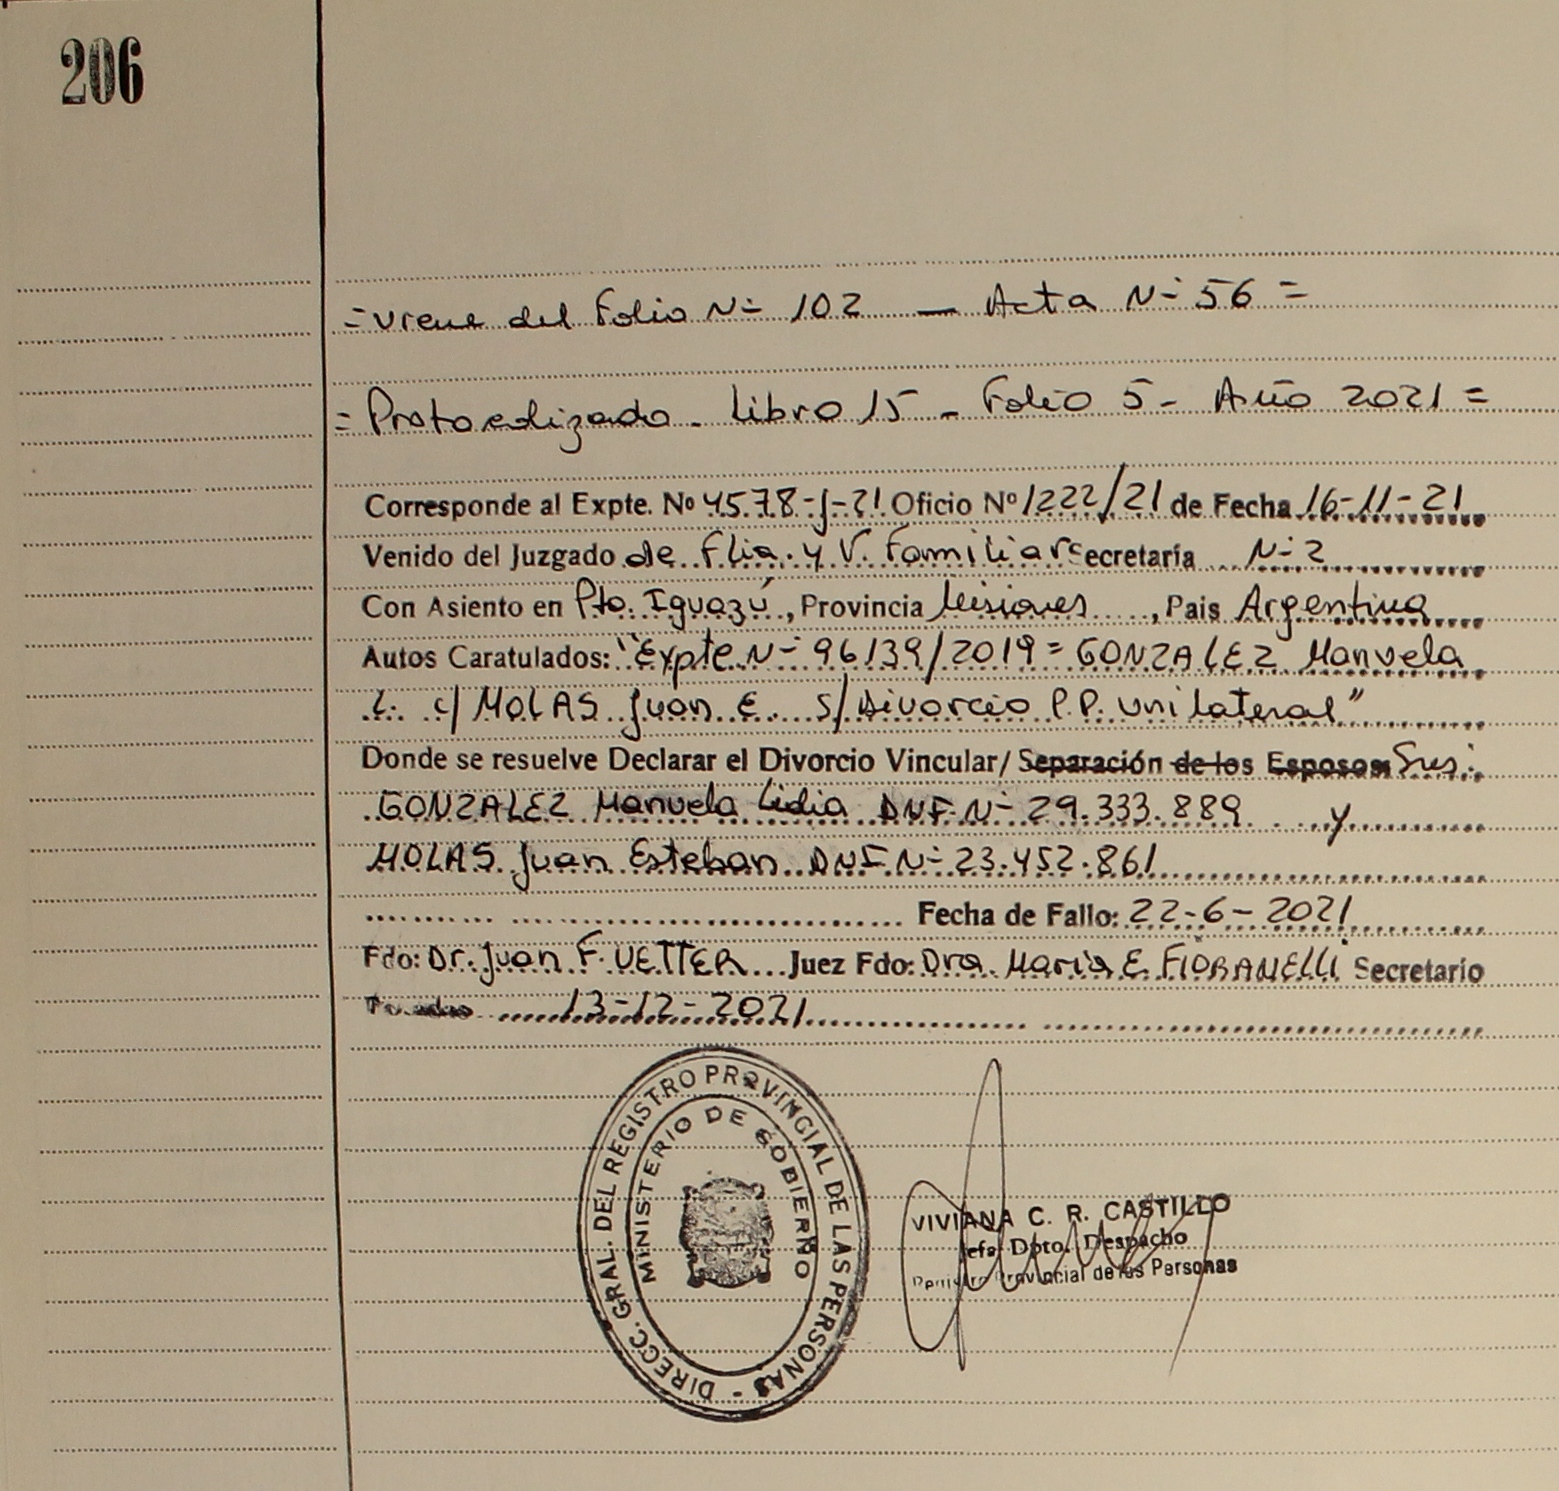 206
=Viene del Folio Nº 102 — Acta Nº 56 =
=Protocolizado - Libro 15 - Folio 5 - Año 2021 =
Corresponde al Expte. Nº 4578-J-21 Oficio Nº 1222/21 de Fecha 16-11-21
Venido del Juzgado de Flia. y V. Familiar Secretaría Nº 2
Con Asiento en Pto. Iguazú, Provincia Misiones, Pais Argentina
Autos Caratulados: "Expte Nº 96139/2019 = GONZALEZ Manuela
L. c/ MOLAS Juan E. s/ Divorcio P.P. Unilateral"
Donde se resuelve Declarar el Divorcio Vincular/ Separación de los Esposos Sres:
GONZALEZ Manuela Lidia DNI Nº 29.333.889 y
MOLAS Juan Esteban DNI Nº 23.452.861
Fecha de Fallo: 22-6-2021
Fdo: Dr. Juan F. VETTER Juez Fdo: Dra. María E. FIORANELLI Secretario
Posadas 13-12-2021
DIRECC. GRAL. DEL REGISTRO PROVINCIAL DE LAS PERSONAS -
MINISTERIO DE GOBIERNO
VIVIANA C. R. CASTILLO
Jefa Dpto. Despacho
Registro Provincial de las Personas